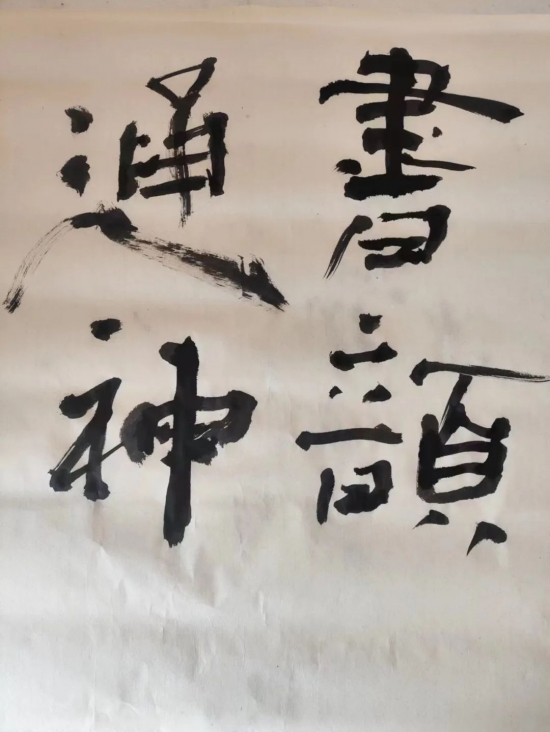 書韻
通神